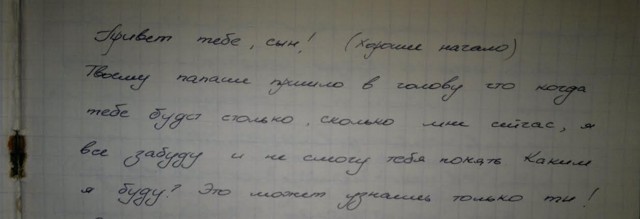 Привет тебе, сын! (хорошее начало)
Твоему папаше пришло в голову что когда
тебе будет столько, сколько мне сейчас, я
все забуду и не смогу тебя понять Каким
я буду? Это может узнаешь только ты!